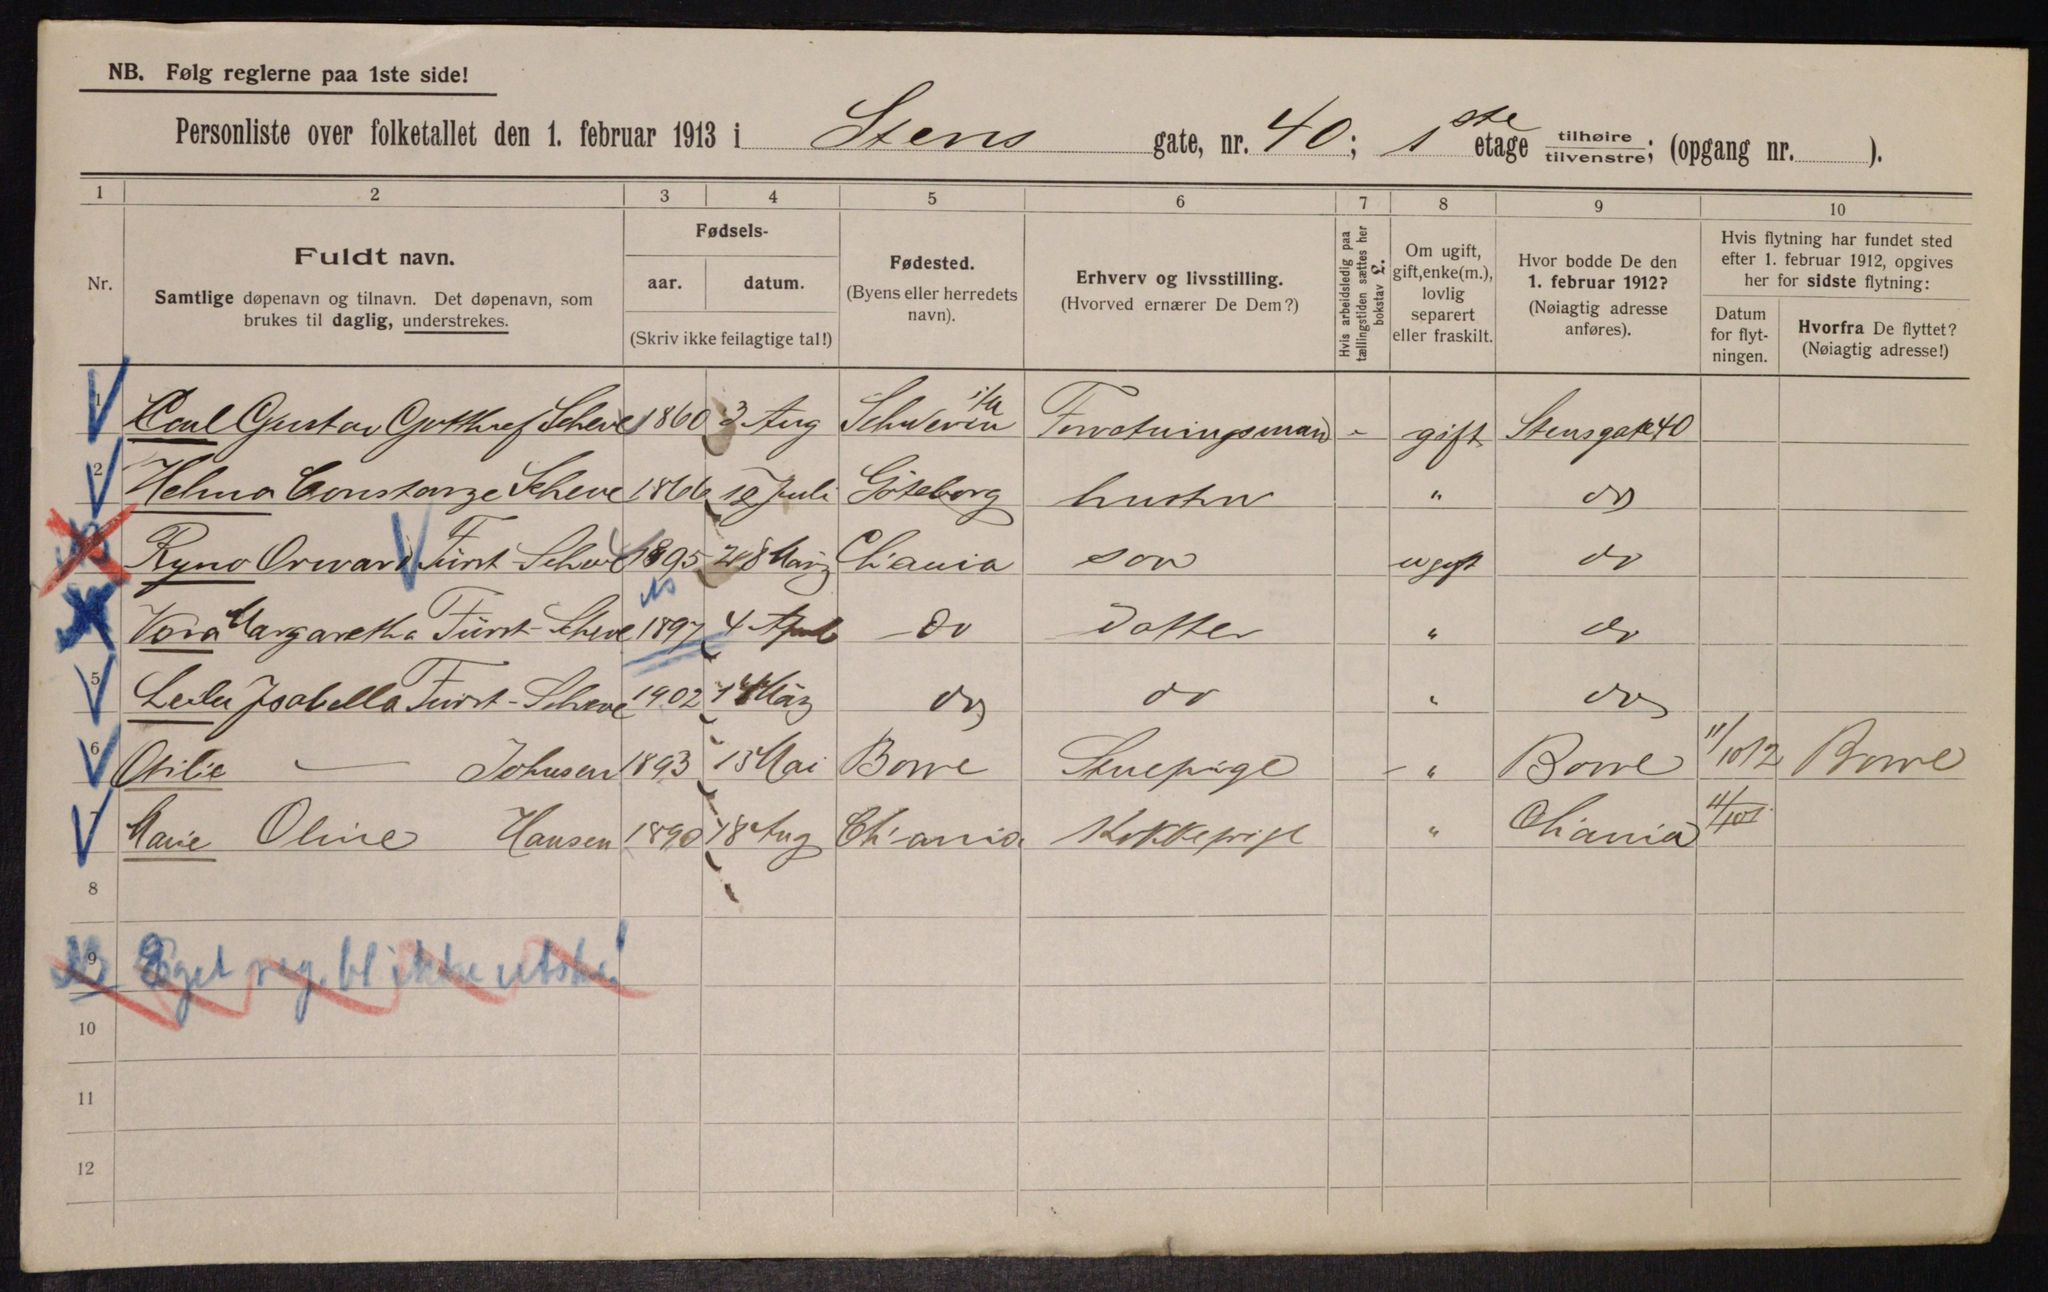 NB. Følg reglerne paa 1ste side!
Personliste over folketallet den 1. februar 1913 i Stens gate, nr. 40; 1ste etage tilhøire / tilvenstre; (opgang nr. ).
1 2 3 4 5 6 7 8 9 10
Nr.
Fuldt navn.
Samtlige døpenavn og tilnavn. Det døpenavn, som
brukes til daglig, understrekes.
Fødsels-
aar. datum.
(Skriv ikke feilagtige tal!)
Fødested.
(Byens eller herredets
navn).
Erhverv og livsstilling.
(Hvorved ernærer De Dem?)
Hvis arbeidsledig paa
tællingstiden sættes her
bokstav L.
Om ugift,
gift, enke(m.),
lovlig
separert
eller fraskilt.
Hvor bodde De den
1. februar 1912?
(Nøiagtig adresse
anføres).
Hvis flytning har fundet sted
efter 1. februar 1912, opgives
her for sidste flytning:
Datum
for flyt-
ningen.
Hvorfra De flyttet?
(Nøiagtig adresse!)
1 Carl Gustav Scheve 1860 3 Aug Schwerin i/a Forretningsmand - gift Stensgate 40
2 Helma Constanze Scheve 1866 Juli Göteborg hustru " do
Ryno Orvar Fürst-Scheve 1895 28 März Chania son ugift do
Vera Margaretha Fürst-Scheve 1897 4 April - do datter " do
5 Leila Isabella Fürst-Scheve 1902 März do do " do
6 Otilie — Johnsen 1893 13 Mai Borre Stuepige - " Borre 11/10 12 Borre
7 Marie Oline Hansen 1890 18 Aug Chania Kokkepige " Chania
8
9 Eget reg.bl ikke utskr!
10
11
12